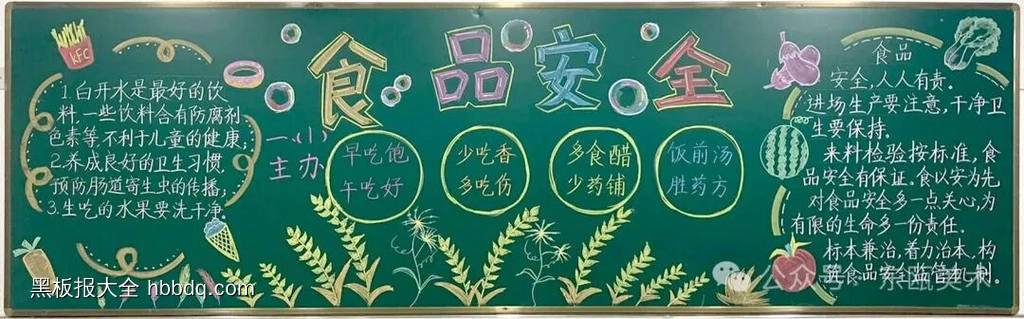 食品安全
KFC
1.白开水是最好的饮
料,一些饮料含有防腐剂
色素等,不利于儿童的健康;
2.养成良好的卫生习惯,
预防肠道寄生虫的传播;
3.生吃的水果要洗干净.
一(小)
主办
早吃饱
午吃好
少吃香
多吃伤
多食醋
少药铺
饭前汤
胜药方
食品
安全,人人有责.
进场生产要注意,干净卫
生要保持.
来料检验按标准,食
品安全有保证.食以安为先
对食品安全多一点关心,为
有限的生命多一份责任.
标本兼治,着力治本.构
筑食品安全监管机制.
黑板报大全 hbbdq.com
公众号